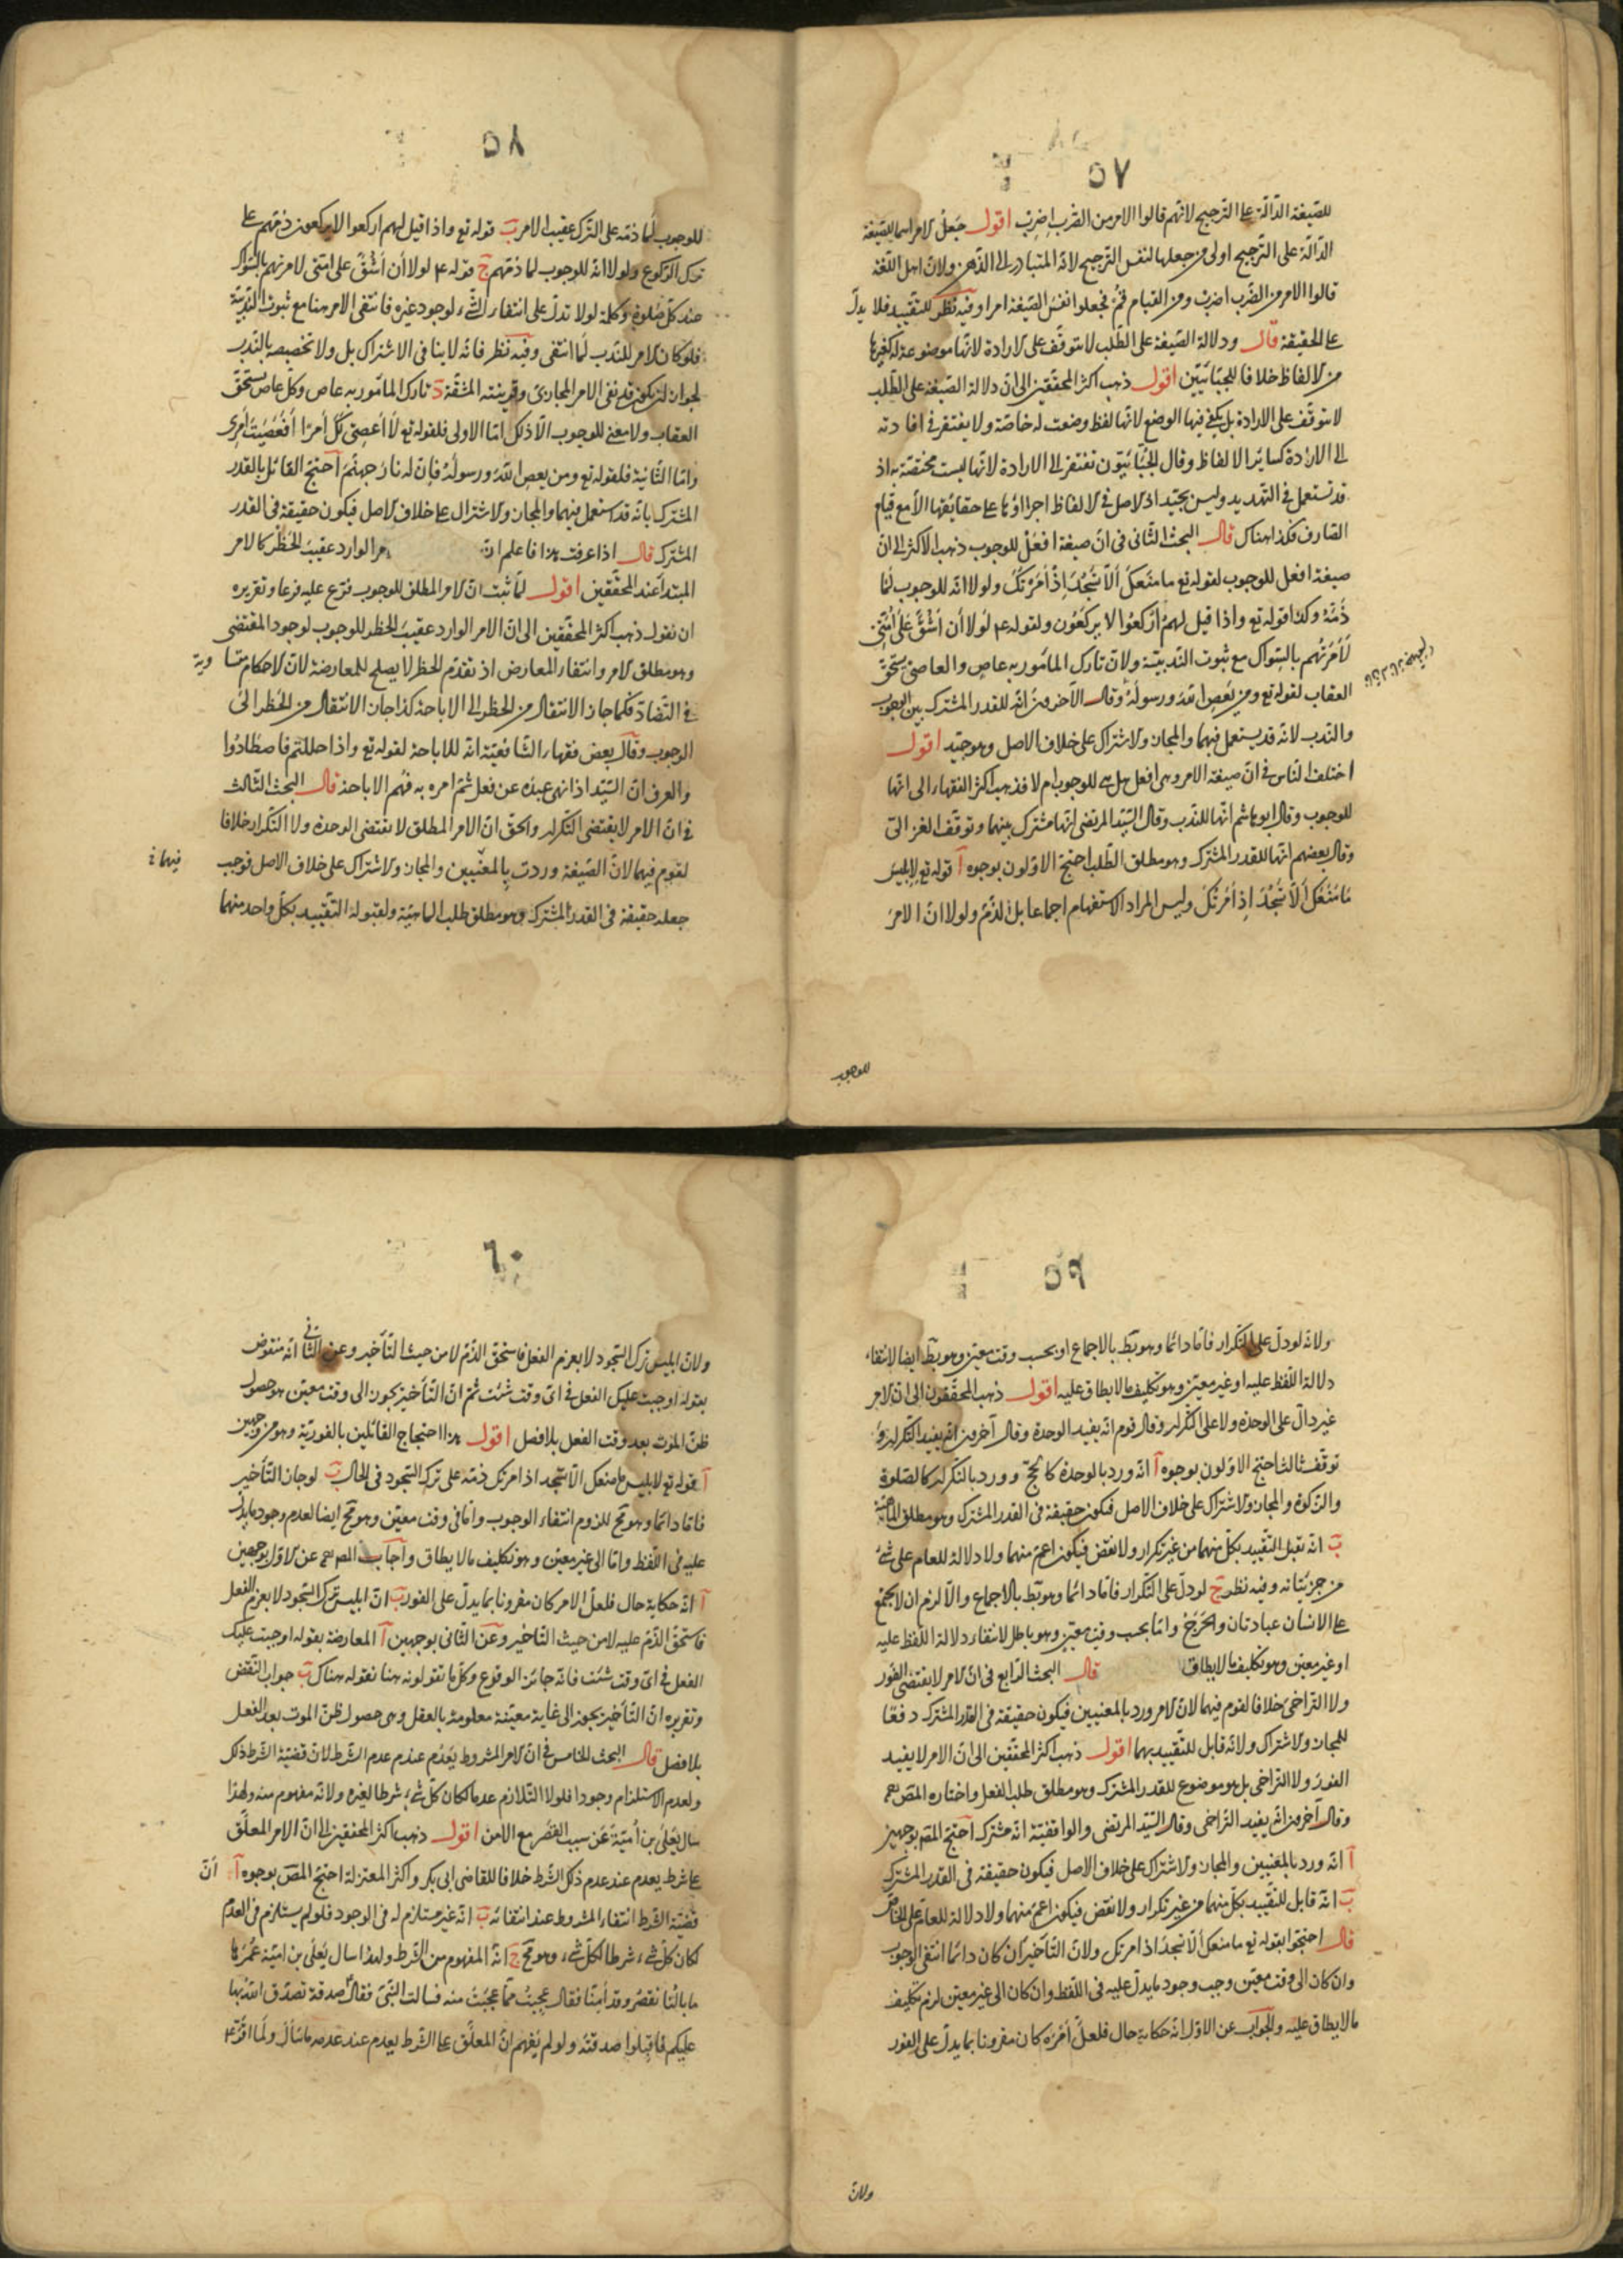 ٥٧
للصيغة الدالّة على الترجيح لانهم قالوا الامر من الضرب اضرب اقول جعل الامر اسما للصيغة
الدالّة على الترجيح اولى من جعلها لنفس الترجيح لانه المتبادر الى الذهن ولان اهل اللغة
قالوا الامر من الضرب اضرب ومن القيام قم فجعلوا نفس الصيغة امرا وفيه نظر للتقييد فلا يدلّ
على الحقيقة قال ودلالة الصيغة على الطلب لا تتوقف على الارادة لانها موضوعة له كغيرها
من الالفاظ خلافا للجبّائيّين اقول ذهب اكثر المحققين الى ان دلالة الصيغة على الطلب
لا تتوقف على الارادة بل يكفى فيها الوضع لانها لفظ وضعت له خاصّة ولا يفتقر فى افادته
الى الارادة كسائر الالفاظ وقال الجبّائيّون تفتقر الى الارادة لانها ليست مختصّة به اذ
قد تستعمل فى التهديد وليس بجيّد اذ الاصل فى الالفاظ اجراؤها على حقايقها الّا مع قيام
الصارف فكذا هناك قال البحث الثانى فى انّ صيغة افعل للوجوب ذهب الاكثر الى ان
صيغة افعل للوجوب لقوله تع ما منعك الّا تسجد اذ امرتك ولولا انه للوجوب لما
ذمّه وكذا قوله تع واذا قيل لهم اركعوا لا يركعون ولقوله ع لولا أن اشقّ على امّتى
لأمرتهم بالسّواك مع ثبوت الندبيّة ولان تارك المأمور به عاص والعاصى يستحق
العقاب لقوله تع ومن يعص الله ورسوله وقال الآخرون انّه للقدر المشترك بين الوجوب
والندب لانه قد يستعمل فيهما والمجاز والاشتراك على خلاف الاصل وهو جيّد اقول
اختلف الناس فى انّ صيغة الامر وهى افعل هل هى للوجوب ام لا فذهب اكثر الفقهاء الى انها
للوجوب وقال ابو هاشم انها للندب وقال السيّد المرتضى انها مشترك بينهما وتوقف الغزالى
وقال بعضهم انها للقدر المشترك وهو مطلق الطلب احتج الاوّلون بوجوه آ قوله تع لابليس
ما منعك ألّا تسجد اذ امرتك وليس المراد الاستفهام اجماعا بل الذمّ ولولا انّ الامر
للوجوب
٥٨
للوجوب لما ذمّه على الترك عقيب الامر ب قوله تع واذا قيل لهم اركعوا لا يركعون ذمّهم على
ترك الركوع ولولا انّه للوجوب لما ذمّهم ج قوله ع لولا أن أشقّ على امّتى لامرتهم بالسّواك
عند كلّ صلوة وكلمة لولا تدلّ على انتفاء الشىء لوجود غيره فانتفى الامر هنا مع ثبوت الندبيّة
فلو كان الامر للندب لما انتفى وفيه نظر فانّه لا ينافى الاشتراك بل ولا تخصيصه بالندب
لجواز ان يكون قد نفى الامر المجازى وقرينته المشقّة د تارك المأمور به عاص وكلّ عاص يستحقّ
العقاب ولا معنى للوجوب الّا ذلك امّا الاولى فلقوله تع لا أعصى لك أمرا أفعصيت أمرى
وامّا الثانية فلقوله تع ومن يعص الله ورسوله فإن له نار جهنّم احتجّ القائل بالقدر
المشترك بانّه قد استعمل فيهما والمجاز والاشتراك على خلاف الاصل فيكون حقيقة فى القدر
المشترك قال اذا عرفت هذا فاعلم انّ الامر الوارد عقيب الحظر كالامر
المبتدأ عند المحقّقين اقول لمّا ثبت انّ الامر المطلق للوجوب فرّع عليه فرعا وتقريره
ان نقول ذهب اكثر المحقّقين الى انّ الامر الوارد عقيب الحظر للوجوب لوجود المقتضى
وهو مطلق الامر وانتفاء المعارض اذ تقدّم الحظر لا يصلح للمعارضة لانّ الاحكام متساوية
فى التضادّ فكما جاز الانتقال من الحظر الى الاباحة كذا جاز الانتقال من الحظر الى
الوجوب وقال بعض فقهاء الشافعيّة انّه للاباحة لقوله تع واذا حللتم فاصطادوا
والعرف ان السيّد اذا نهى عبده عن فعل ثمّ امره به فهم الاباحة قال البحث الثالث
فى انّ الامر لا يقتضى التكرار والحقّ انّ الامر المطلق لا يقتضى الوحدة ولا التكرار خلافا
لقوم فيهما لانّ الصيغة وردت بالمعنيين والمجاز والاشتراك على خلاف الاصل فوجب
فيهما
جعله حقيقة فى القدر المشترك وهو مطلق طلب الماهيّة ولقبوله التقييد بكلّ واحد منهما
٥٩
ولانه لو دلّ على التكرار فامّا دائما وهو بط بالاجماع او بحسب وقت معيّن وهو بط ايضا لانتفاء
دلالة اللفظ عليه او غير معيّن وهو تكليف ما لا يطاق عليه اقول ذهب المحقّقون الى ان الامر
غير دالّ على الوحدة ولا على التكرار وقال قوم انّه يفيد الوحدة وقال آخرون انّه يفيد التكرار و
توقف ثالث احتج الاوّلون بوجوه آ انّه ورد بالوحدة كالحجّ وورد بالتكرار كالصلوة
والزكوة والمجاز والاشتراك على خلاف الاصل فيكون حقيقة فى القدر المشترك وهو مطلق الماهيّة
ب انّه يقبل التقييد بكلّ منهما من غير تكرار ولا نقض فيكون اعمّ منهما ولا دلالة للعام على شىء
من جزئيّاته وفيه نظر ج لو دلّ على التكرار فامّا دائما وهو بط بالاجماع والّا لزم ان لا يجتمع
على الانسان عبادتان والحرج وامّا بحسب وقت معيّن وهو باطل لانتفاء دلالة اللفظ عليه
او غير معيّن وهو تكليف ما لا يطاق قال البحث الرابع فى انّ الامر لا يقتضى الفور
ولا التراخى خلافا لقوم فيهما لانّ الامر ورد بالمعنيين فيكون حقيقة فى القدر المشترك دفعا
للمجاز والاشتراك ولانه قابل للتقييد بهما اقول ذهب اكثر المحقّقين الى انّ الامر لا يفيد
الفور ولا التراخى بل هو موضوع للقدر المشترك وهو مطلق طلب الفعل واختاره المص
وقال آخرون انّه يفيد التراخى وقال السيّد المرتضى والواقفيّة انّه مشترك احتجّ المص بوجهين
آ انّه ورد بالمعنيين والمجاز والاشتراك على خلاف الاصل فيكون حقيقة فى القدر المشترك
ب انّه قابل للتقييد بكلّ منهما من غير تكرار ولا نقض فيكون اعمّ منهما ولا دلالة للعام على الخاص
قال احتجّوا بقوله تع ما منعك ألّا تسجد اذ امرتك ولانّ التأخير ان كان دائما انتفى الوجوب
وان كان الى وقت معيّن وجب وجود ما يدلّ عليه فى اللفظ وان كان الى غير معيّن لزم تكليف
ما لا يطاق عليه والجواب عن الاوّل انّه حكاية حال فلعلّ أمره كان مقرونا بما يدلّ على الفور
ولانّ
٦٠
ولانّ ابليس ترك السّجود لا بعزم الفعل فاستحق الذّمّ لا من حيث التأخير وعن الثانى انّه منقوض
بقوله اوجبت عليك الفعل فى اىّ وقت شئت ثمّ انّ التأخير يجوز الى وقت معيّن هو حصول
ظنّ الموت بعد وقت الفعل بلا فصل اقول هذا احتجاج القائلين بالفوريّة وهو من وجهين
آ قوله تع لابليس ما منعك الّا تسجد اذ امرتك ذمّه على ترك السّجود فى الحال ب لو جاز التأخير
فامّا دائما وهو مح للزوم انتفاء الوجوب وامّا فى وقت معيّن وهو مح ايضا لعدم وجود ما يدلّ
عليه فى اللفظ وامّا الى غير معيّن وهو تكليف ما لا يطاق واجاب المص عن الاوّل بوجهين
آ انّه حكاية حال فلعلّ الامر كان مقرونا بما يدلّ على الفور ب انّ ابليس ترك السّجود لا بعزم الفعل
فاستحقّ الذّمّ عليه لا من حيث التأخير وعن الثانى بوجهين آ المعارضة بقوله اوجبت عليك
الفعل فى اىّ وقت شئت فانّه جائز الوقوع وكلّ ما تقولونه هنا نقوله هناك ب جواب النقض
وتقريره انّ التأخير يجوز الى غاية معيّنة معلومة بالعقل وهى حصول ظنّ الموت بعد الفعل
بلا فصل قال البحث الخامس فى انّ الامر المشروط يعدم عند عدم الشرط لانّ قضيّة الشرط ذلك
ولعدم الاستلزام وجودا فلولا التلازم عدما لكان كلّ شىء شرطا لغيره ولانّه مفهوم منه ولهذا
سال يعلى بن أميّة عن سبب القصر مع الامن اقول ذهب اكثر المحقّقين الى انّ الامر المعلّق
على شرط يعدم عند عدم ذلك الشرط خلافا للقاضى ابى بكر واكثر المعتزلة احتجّ المص بوجوه آ أنّ
قضيّة الشرط انتفاء المشروط عند انتفائه ب انّه غير مستلزم له فى الوجود فلو لم يستلزم فى العدم
لكان كلّ شىء شرطا لكلّ شىء وهو مح ج انّه المفهوم من الشرط ولهذا سال يعلى بن اميّة عمر
ما بالنا نقصر وقد أمنّا فقال عجبت ممّا عجبت منه فسالت النبىّ فقال صدقة تصدّق الله بها
عليكم فاقبلوا صدقته ولو لم يفهم انّ المعلّق على الشرط يعدم عند عدمه ما سأل ولما اقرّه